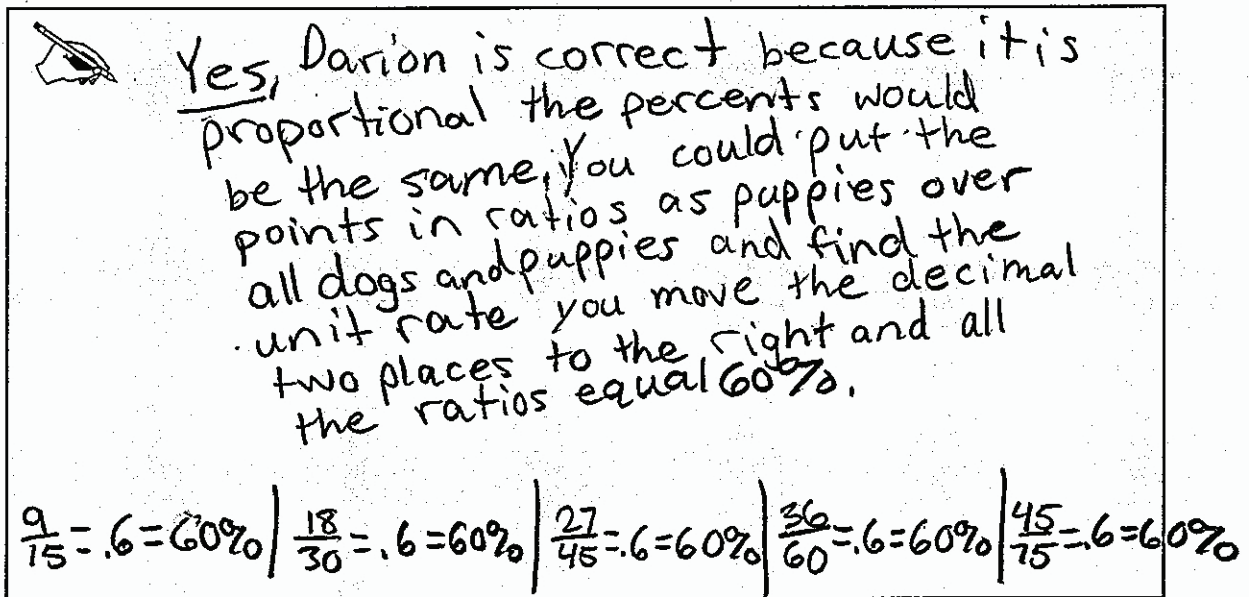 Yes, Darion is correct because it is
proportional the percents would
be the same, You could put the
points in ratios as puppies over
all dogs and puppies and find the
unit rate you move the decimal
two places to the right and all
the ratios equal 60%.
9/15 = .6 = 60% | 18/30 = .6 = 60% | 27/45 = .6 = 60% | 36/60 = .6 = 60% | 45/75 = .6 = 60%